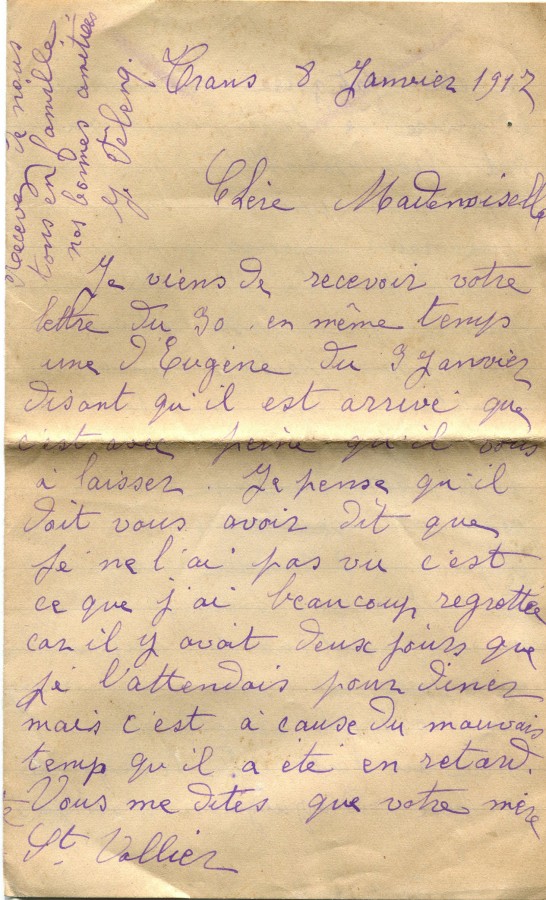 Trans 8 Janvier 1917
Chère Mademoiselle
Je viens de recevoir votre
lettre du 30 en même temps
une d'Eugène du 3 Janvier
disant qu'il est arrivé que
c'est avec peine qu'il vous
à laisser. Je pense qu'il
doit vous avoir dit que
je ne l'ai pas vu c'est
ce que j'ai beaucoup regrettée
car il y avait deux jours que
je l'attendais pour diner
mais c'est à cause du mauvais
temp qu'il a été en retard.
Vous me dites que votre mère
St Vallier
Recevez de nous
tous en famille
nos bonnes amitiées